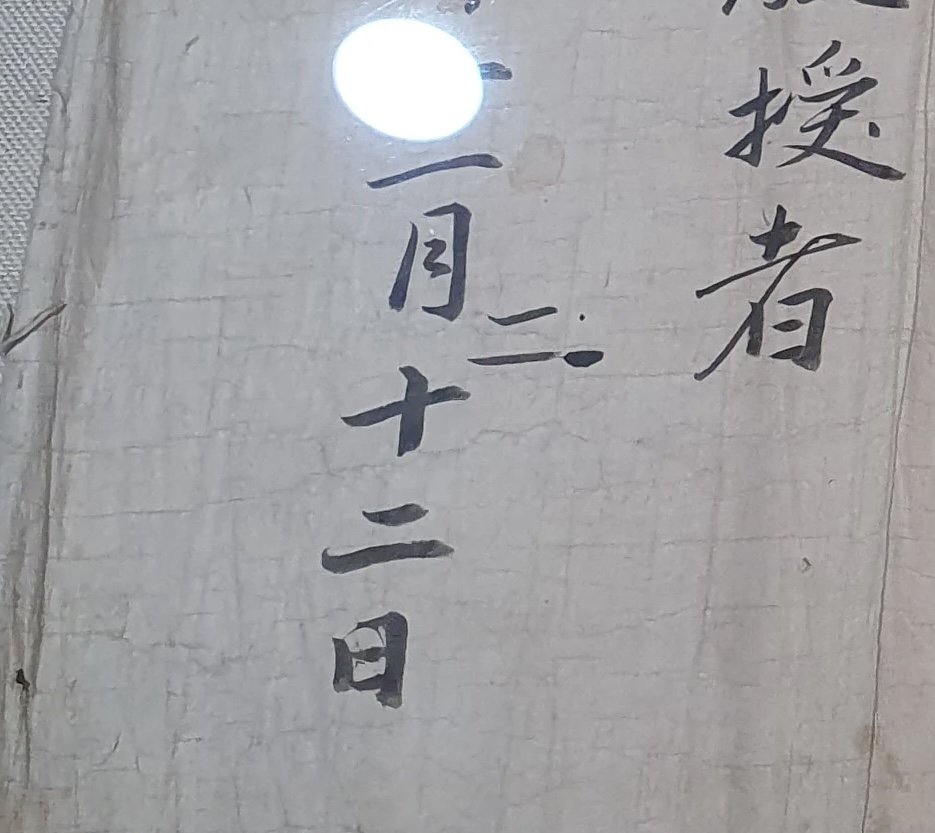 授者
一月十二日
二